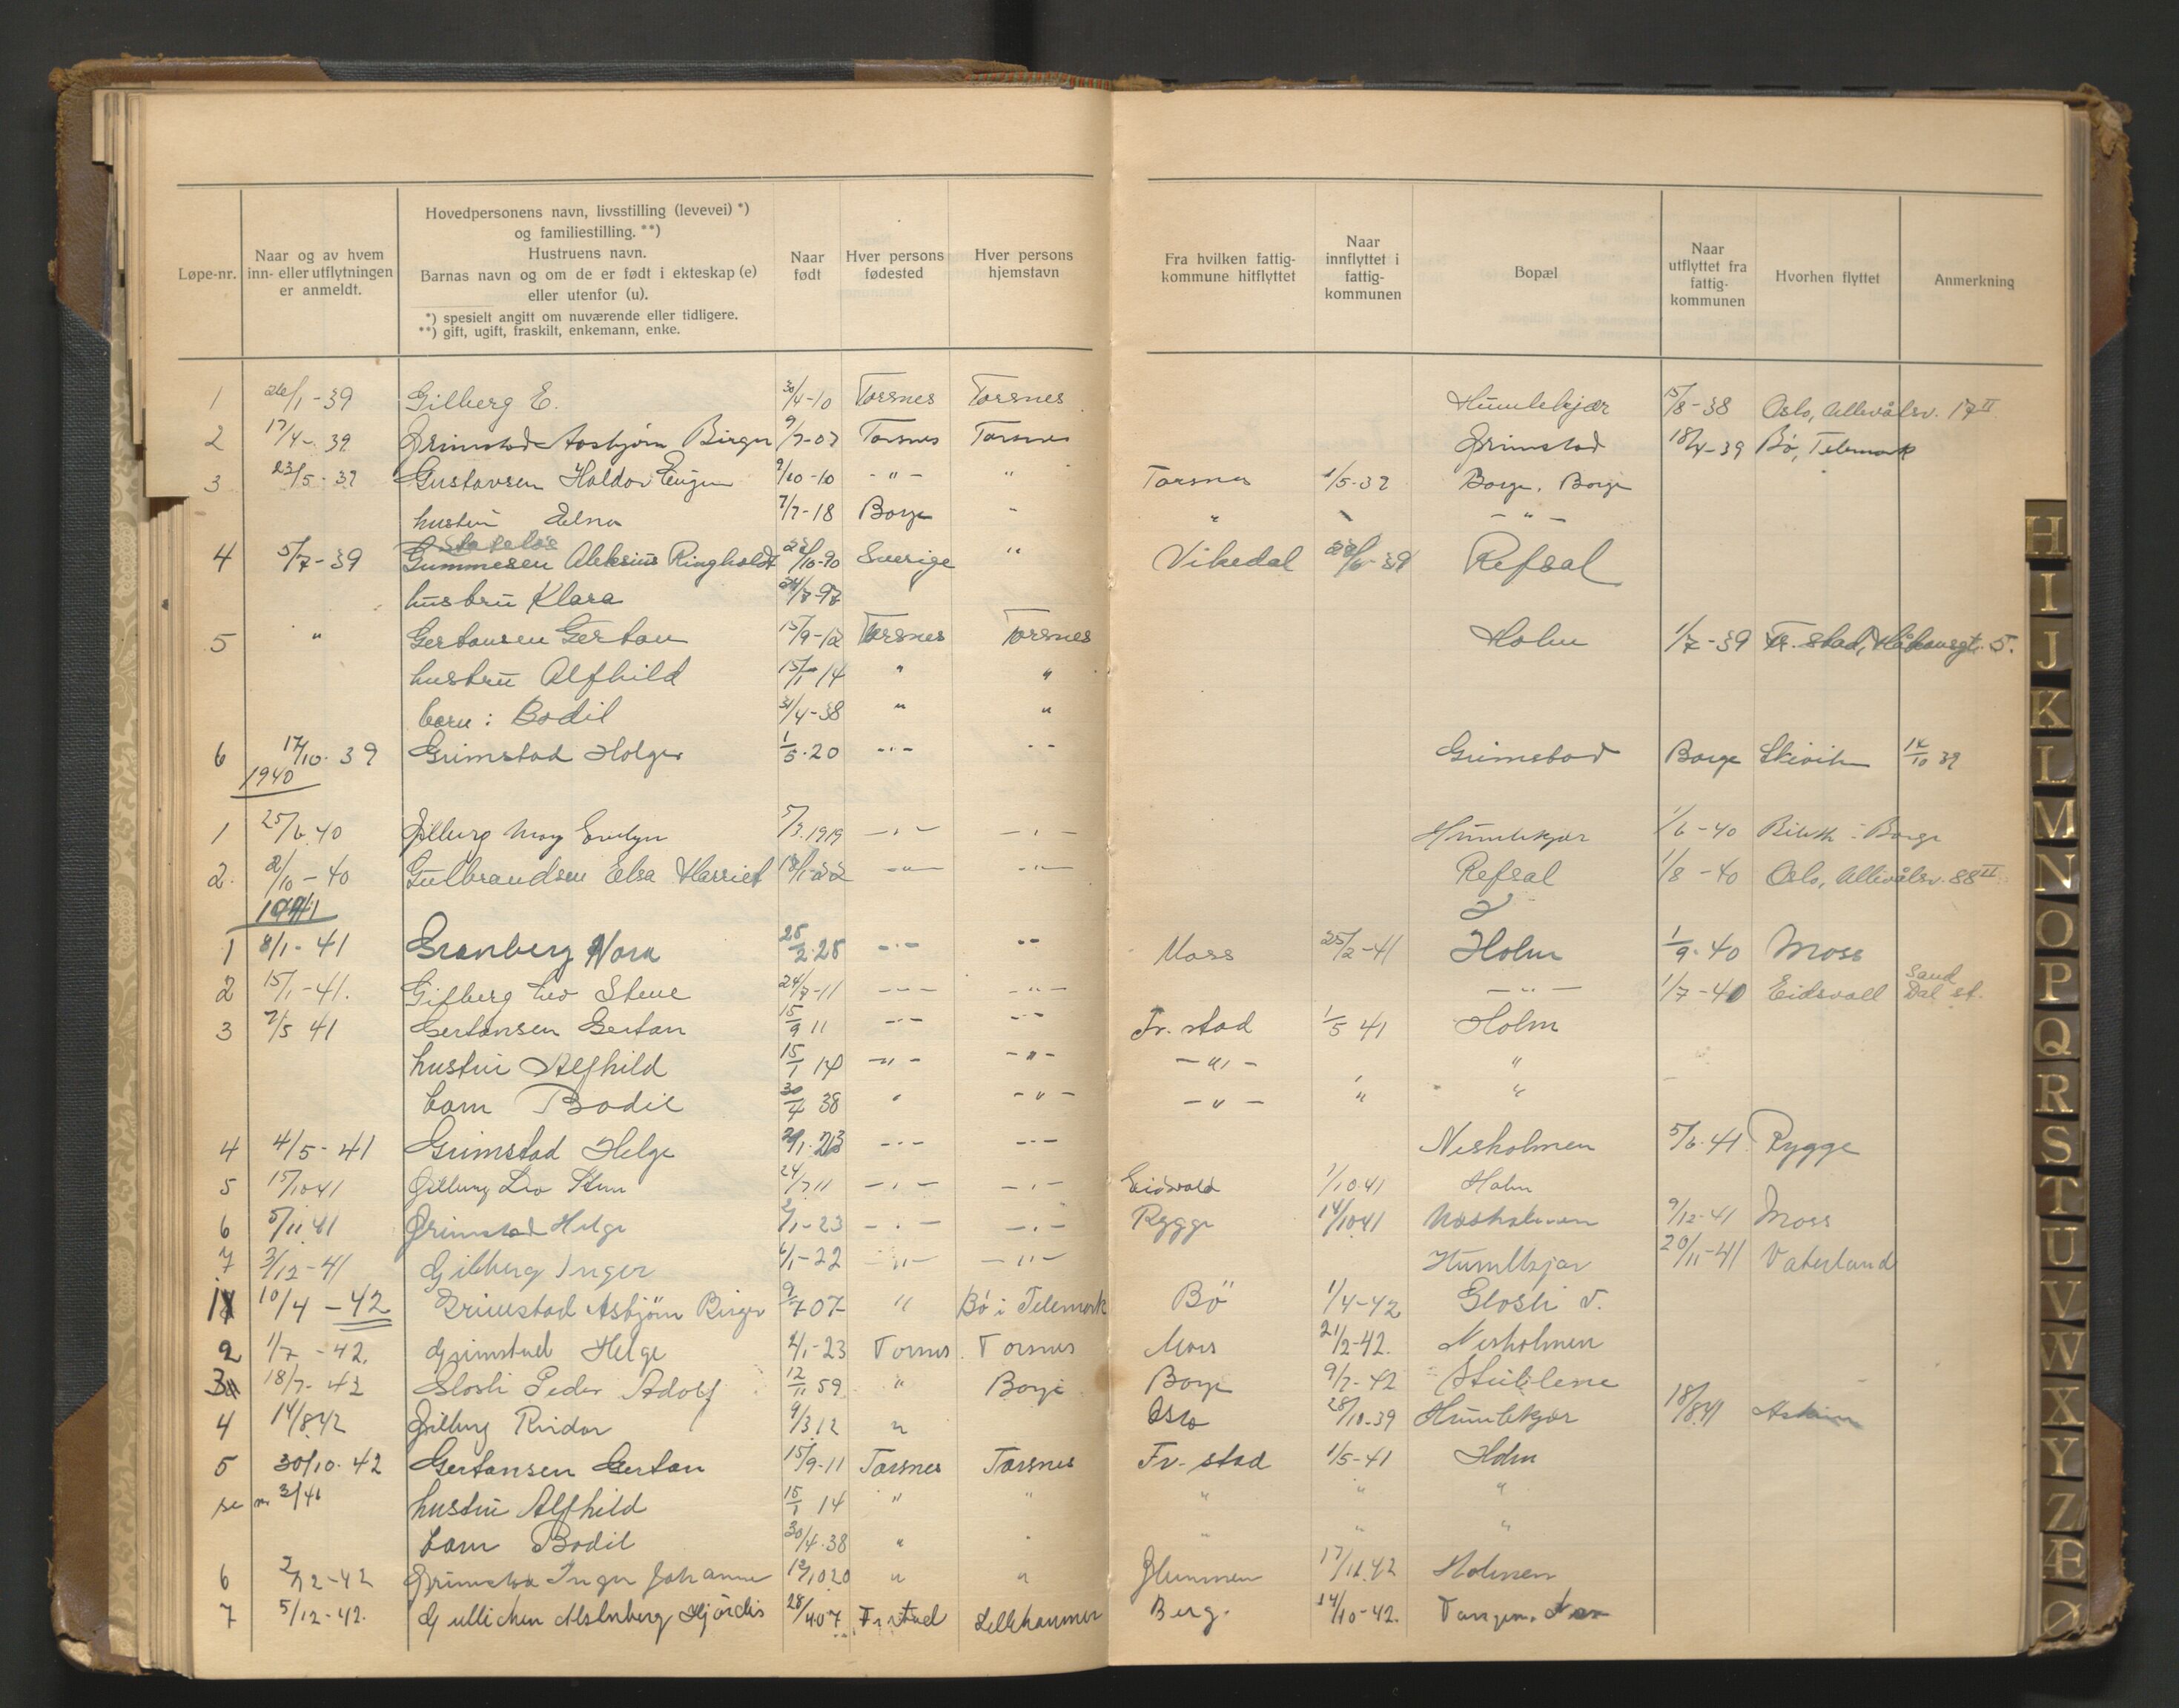 Løpe-nr. | Naar og av hvem inn- eller utflytningen er anmeldt. | Hovedpersonens navn, livsstilling (levevei) *) og familiestilling. **) Hustruens navn. Barnas navn og om de er født i ekteskap (e) eller utenfor (u). *) spesielt angitt om nuværende eller tidligere. **) gift, ugift, fraskilt, enkemann, enke. | Naar født | Hver persons fødested | Hver persons hjemstavn | Fra hvilken fattig-kommune hitflyttet | Naar innflyttet i fattig-kommunen | Bopæl | Naar utflyttet fra fattig-kommunen | Hvorhen flyttet | Anmerkning
1 26/1-39 Gilberg E. 30/4-10 Torsnes Torsnes Humlekjær 15/8-38 Oslo, Ullevålsv. 17 II
2 17/4-39 Grimstad Asbjørn Birger 9/7-07 Torsnes Torsnes Grimstad 18/4-39 Bø, Telemark
3 23/5-39 Gustavsen Haldor Eugen 9/10-10 -"- " Torsnes 1/5-39 Borge, Borge
hustru Edna 7/7-18 Borge " " -"-
Statsløs
4 5/7-39 Gummesen Aleksius Ringholdt 10-90 Sverige " Vikedal 6-39 Refsal
hustru Klara
5 " Gertausen Gertau 15/9-12 Torsnes Torsnes Holm 1/7-39 Fr. stad, Håkonsgt. 5.
hustru Alfhild 15/1-14 " "
barn: Bodil 31/4-38 " "
6 17/10-39 Grimstad Holger 1/5-20 -"- -"- Grimstad Borge Skivik 14/10 39
1940
1 25/6 40 Gilberg May Evelyn 5/3.1919 -"- -"- Humlekjær 1/6-40 Borge
2. 2/10-40 Gulbrandsen Elsa Harriet 18/1-22 -"- -"- Refsal 1/8-40 Oslo, Ullevålsv. 88 II
1941
1 8/1-41 Granberg Nora 25/2-25 -"- -"- Moss 25/2-41 Holm 1/9-40 Moss
2 15/1-41. Gilberg Leo Steve 24/7-11 -"- -"- -"- 1/7-40 Eidsvoll Sand Dal st.
3 7/5 41 Gertansen Gertan 15/9 11 -"- -"- Fr. stad 1/5 41 Holm
hustru Alfhild 15/1 14 -"- -"- -"- "
barn Bodil 30/4 38 " -"- -"- " "
4 4/5-41 Grimstad Helge 2/1-23 -"- -"- Nesholmen 5/6-41 Rygge
5 15/10 41 Gilberg Leo Steve 24/7 11 -"- -"- Eidsvold 1/10 41 Holm
6 5/11 41 Grimstad Helge 2/1-23 -"- -"- Rygge 14/10 41 Nesholmen 9/12-41 Moss
7 3/12-41 Gilberg Inger 6/1-22 -"- -"- Humlekjær 20/11-41 Vaterland
1 10/4-42 Grimstad Asbjørn Birger 9/7-07 " Bø i Telemark Bø 1/4-42 Glosli v.
2 1/7-42. Grimstad Helge 2/1-23 Torsnes Torsnes Moss 21/2-42. Nesholmen
3 18/7-42 Glosli Peder Adolf 12/11 59 " Borge Borge 9/7-42 Stublene
4 14/8 42 Gilberg Reidar 9/3 12 " Oslo 28/10-39 Humlekjær 18/8 41 Askim
5 30/10-42 Gertansen Gertan 15/9-11 Torsnes Torsnes Fr. stad 1/5-41 Holm
se nr 3/41 hustru Alfhild 15/1 14 " " " " "
barn Bodil 30/4-38 " " " " "
6 2/12-42 Grimstad Inger Johanne 12/10 20 " " Glemmen 17/11 42 Holmen
7 5/12-42. Gullichen Hjördis 28/4 07 Fr. stad Lillehammer Berg. 14/10-42. Tangen.
H
I
J
K
L
M
N
O
P
Q
R
S
T
U
V
W
X
Y
Z
Æ
Ø